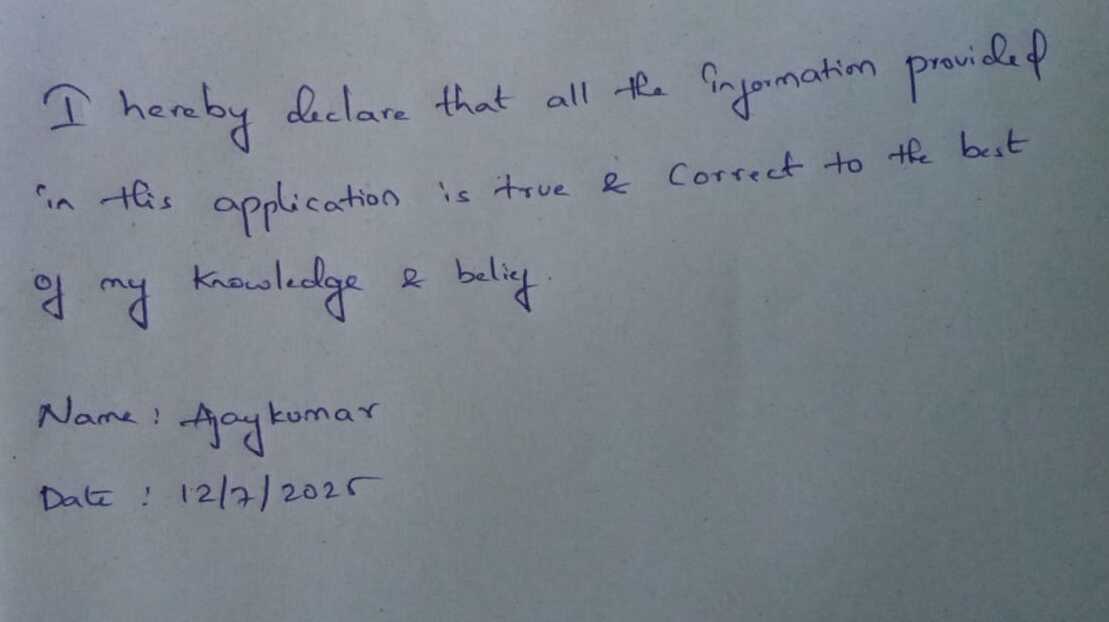 I hereby declare that all the information provided
in this application is true & Correct to the best
of my knowledge & belief.
Name : Ajaykumar
Date : 12/7/2025